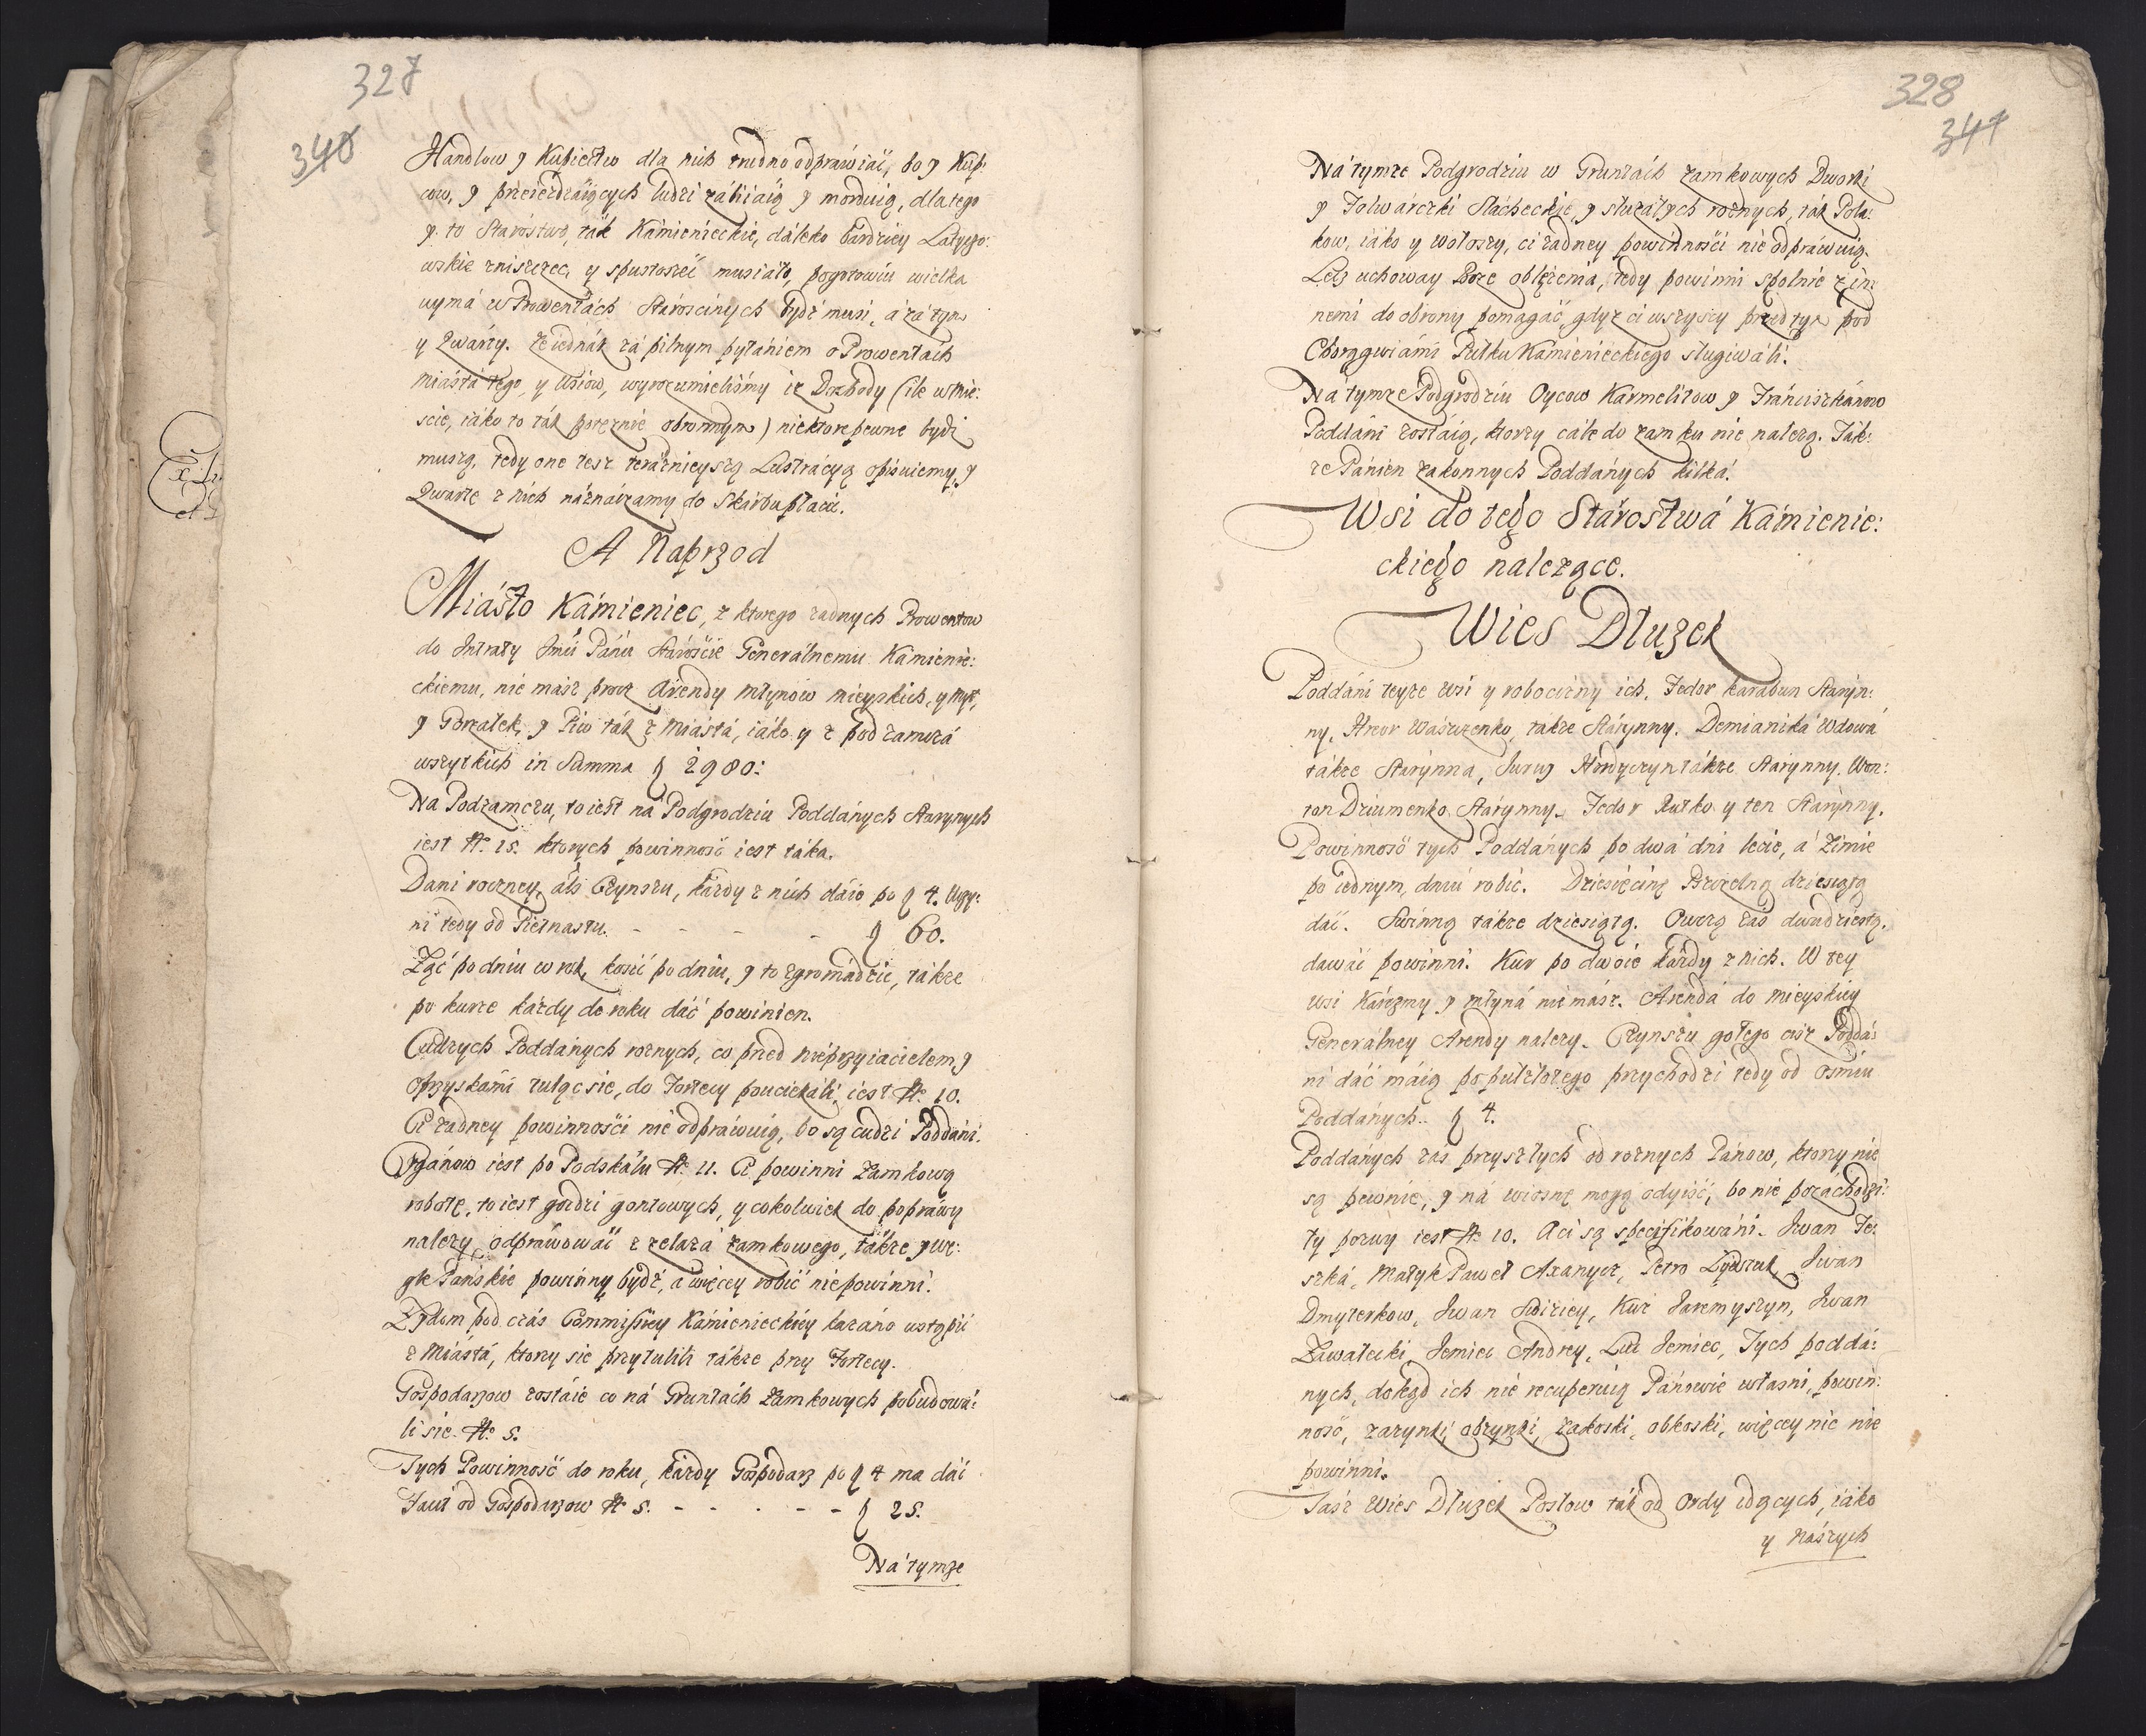 327
340
Handlow y Kupiectwo dla nich trudno odpráwiáć, bo y Kup:
cow, y przeiezdzaiących ludzi zábiiaią y morduią, dlatego
y to Stárostwo, ták Kámienieckie, dáleko bardziey Latyczo:
wskie zniszczec, y spustoszeć musiáło, pogotowiu wielka
uymá w Prowentách Stárościnych bydź musi, á zá tym
y Kwárty. Ze iednák zá pilnym pytániem o Prowentách
Miástá tego, y Wsiow, wyrozumielismy iz Dochody (ile w Mie:
scie, iáko to ták potęznie obronnym) niektore pewne bydź
muszą, tedy one tesz teráźnieyszą Lustrácyą opisuiemy, y
Kwartę z nich náznáczamy do Skárbu płácić.
A Naprzod
Miásto Kámieniec, z ktorego zadnych Prowentow
do Intraty Jmći Pánu Stárośćie Generálnemu Kámienie:
ckiemu, nie mász procz Arendy młynow mieyskich, y Myt,
y Gorzałek, y Piw ták z Miástá, iáko y z pod zamczá
wszytkich in Summa f 2980:
Na Podzamczu, to iest ná Podgrodziu Poddánych Starynych
iest No. 15. ktorych powinność iest táka.
Dani roczney, áls Czynszu, kázdy z nich dáie po f 4. Uczy:
ni tedy od Pietnastu. - - - - f 60.
Ząć po dniu w rok, kosić po dniu, y to zgromádzić, tákze
po kurze kázdy do roku dáć powinien.
Cudzych Poddánych roznych, co przed nieprzyiacielem, y
opryskámi tuląc sie, do Fortecy pouciekáli, iest No. 10.
Ci zadney powinnośći nie odpráwuią, bo są cudzi Poddáni.
Cygánow iest po Podskálu No. 11. Ci powinni Zamkową
robotę, to iest gozdzi gontowych, y cokolwiek do popráwy
nalezy, odpráwowáć z zelázá zamkowego, tákze, y Wę:
gle Pánskie powinny bydź, a więcey robić niepowinni.
Zydom pod czás Commissiey Kámienieckiey kazáno ustąpić
z Miástá, ktorzy sie przytulili tákze przy Fortecy.
Gospodarzow zostáie co ná Gruntách Zamkowych pobudowá:
li sie. No. 5.
Tych Powinność do roku, kázdy Gospodarz po f 4 ma dáć
Facit od Gospodarzow No 5. - - - - - f 25.
Ná tymze
328
341
Ná tymze Podgrodziu w Gruntách zamkowych Dworki
y Folwárczki Slácheckie, y słuzáłych roznych, ták Pola:
kow, iáko y Wołoszy, ci zadney powinnośći nie odpráwuią.
Lecz uchoway Boze oblęzenia, tedy powinni spolnie z in:
nemi do obrony pomagáć, gdyz ci wszyscy przed tym pod
Chorągwiámi Pułku Kámienieckiego słuzywáli.
Ná tymze Podgrodziu Oycow Karmelitow y Fránciszkánow
Poddáni zostáią, ktorzy cále do zamku nie nalezą. Ták:
ze Pánien zakonnych Poddánych kilká.
Wsi do tego Stárostwá Kámienie:
ckiego nalezące.
Wies Dłuzek
Poddáni teyze wsi y robocizny ich. Fedor Karabun Staryn:
ny, Hrehor Wasczenko, takze Stárynny. Demianiká Wdowá
tákze Starynna, Juruy Hrudyczyn tákze Starynny. Won:
ton Dziumenko Starynny. Fedor Rutko y ten Starynny.
Powinność tych Poddánych po dwá dni lecie, á Zimie
po iednym dniu robić. Dziesięcinę Pszczelną dziesiątą
dáć. Swinną tákze dziesiątą. Owczą zás dwudziestą.
dawáć powinni. Kur po dwoie kázdy z nich. W tey
wsi Kárczmy y młyná nie mász. Arendá do Mieyskiey
Generálney Arendy nalezy. Czynszu gołego cisz Poddá:
ni dáć máią po pułzłotego przychodzi tedy od osmiu
Poddánych. f 4.
Poddánych zás przyszłych od roznych Pánow, ktorzy nie
są pewnie, y ná wiosnę mogą odyiść, bo nie pozáchodzi:
ły pozwy iest No 10. A ci są specifikowáni. Iwan Fe:
szká, Matyk Paweł Axanycz, Petro Zydziuk, Iwan
Dmyterkow, Iwan Swiriey, Kuz Jaremyszyn, Iwan
Zawátecki, Jemiec Andrey, Luc Jemiec, Tych poddá:
nych, dokąd ich nie recuperuią Pánowie własni, powin:
ność, zazynki, obzynki, zakoski, obkoski, więcey nic nie
powinni.
Tasz Wies Dłuzek Posłow ták od Ordy idących, iáko
y nászych